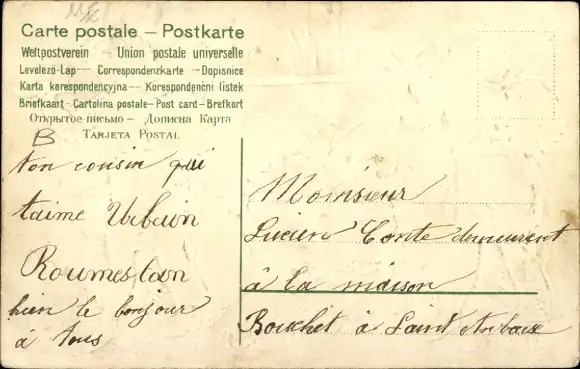 Carte postale – Postkarte
Weltpostverein – Union postale universelle
Levelező-Lap – Correspondenzkarte – Dopisnice
Karta korespondencyjna – Korespondenčni listek
Briefkaart – Cartolina postale – Post card – Brefkort
Открытое письмо – Дописна Карта
Tarjeta Postal
B
ton cousin qui
taime Urbain
Roumestan
bien le bonjour
à tous
Monsieur
Lucien Conte demeurent
à la maison
Bouchet à Saint